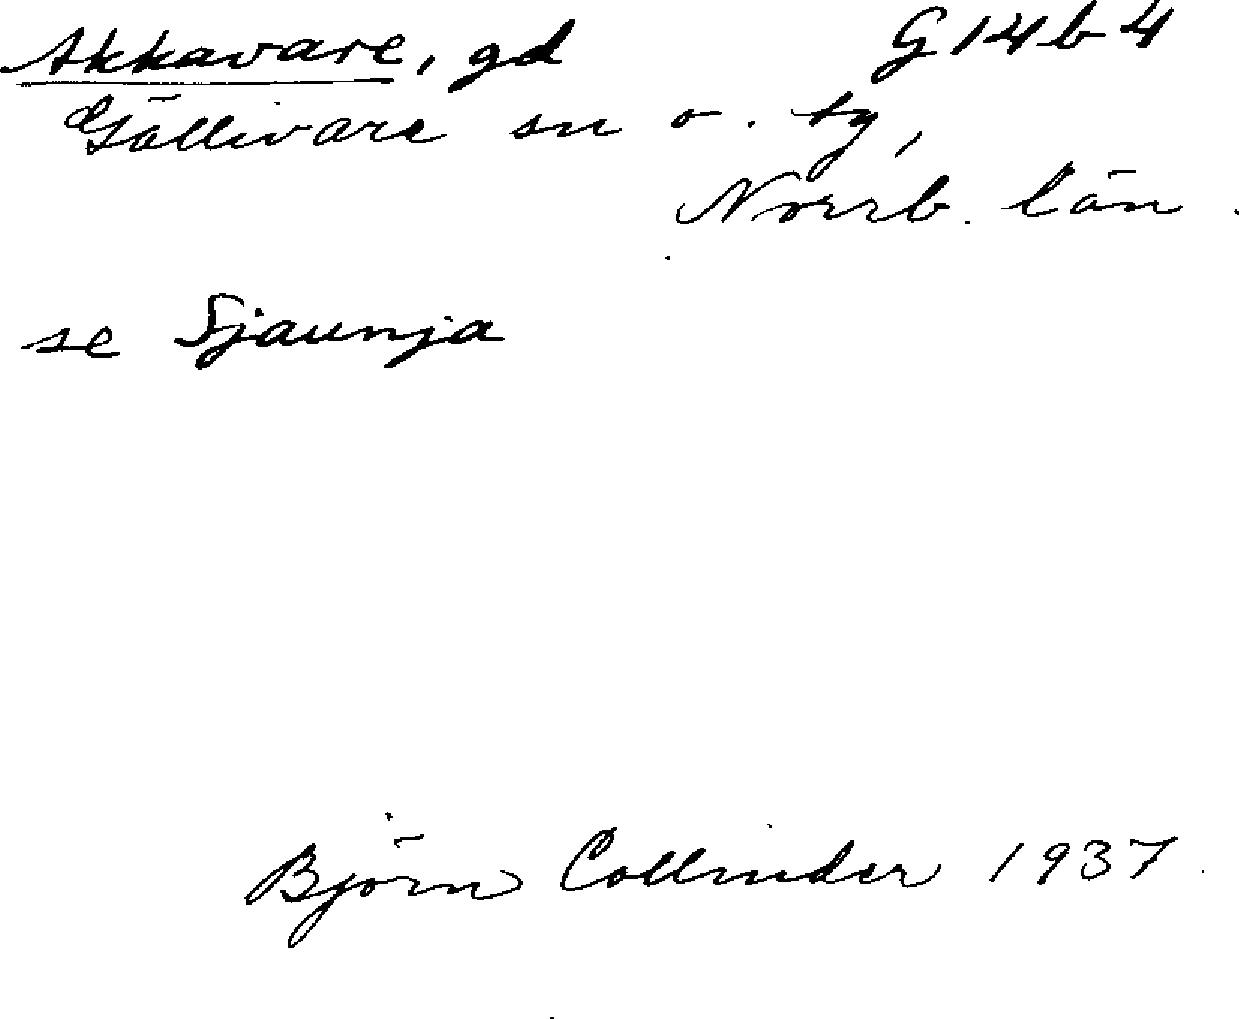 Akkavare, gd G14b4
Gällivare sn o. tg,
Norrb. län.
se Sjaunja
Björn Collinder 1937